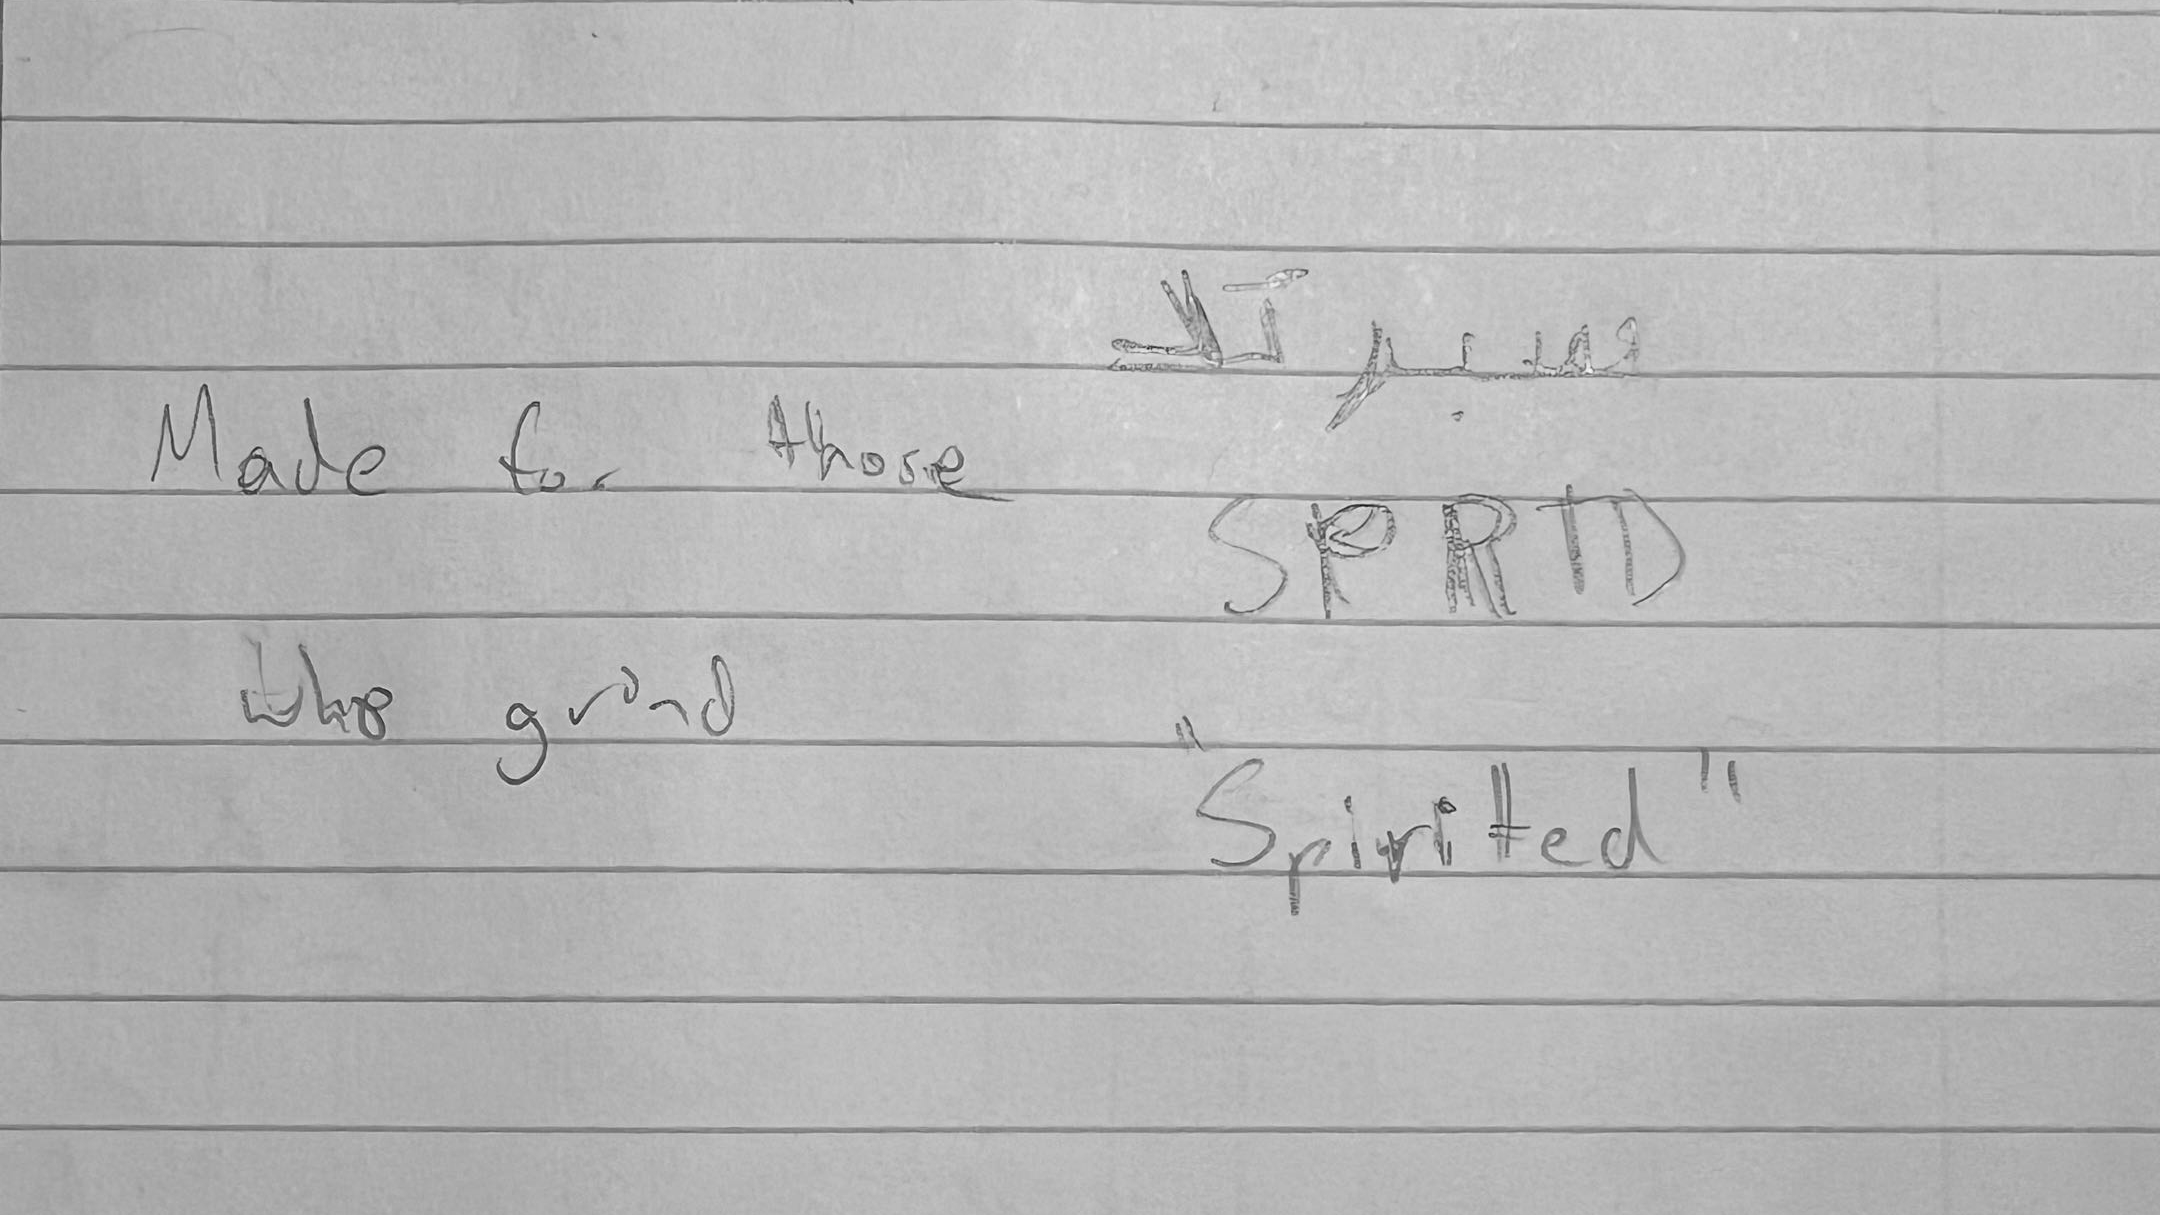 Made for those
who grind
SPRTD
"Spiritted"